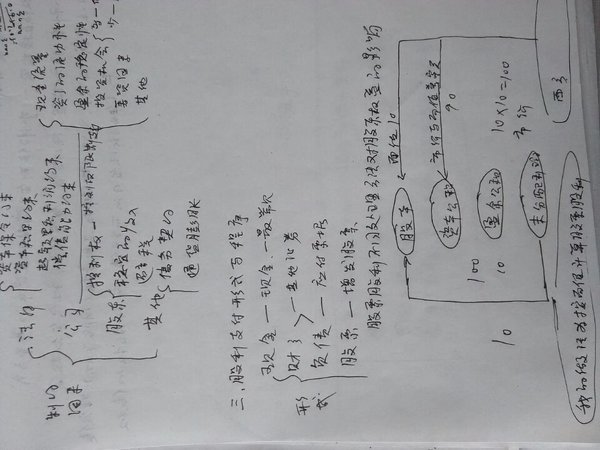 制约因素
法律
资本保全约束
资本积累约束
超额累积利润约束
偿债能力约束
公司
现金流量
资产的流动性
盈余的稳定性
投资机会
筹资因素
其他
股东
控制权—控制权限制
稳定的收入
避税
其他
债务契约
通货膨胀
三、股利支付形式与程序
形式
现金—现金、一般常见
财产—其他证券
负债—应付票据
股票—增发股票
股票股利不同处理方法对股东权益的影响
股本 面值 10
资本公积 90
盈余公积
未分配利润
市价
10×10=100
100
10
10
西方
我的做法为按面值计算股票股利